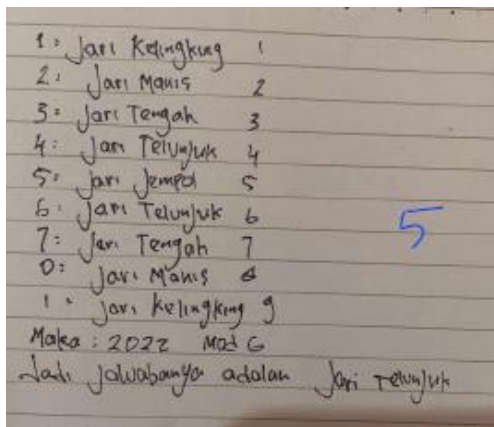 1 : Jari Kelingking 1
2 : Jari Manis 2
3 : Jari Tengah 3
4 : Jari Telunjuk 4
5 : Jari Jempol 5
6 : Jari Telunjuk 6
7 : Jari Tengah 7
0 : Jari Manis 8
1 : Jari Kelingking 9
5
Maka : 2022 Mod 6
Jadi jawabanya adalah Jari Telunjuk